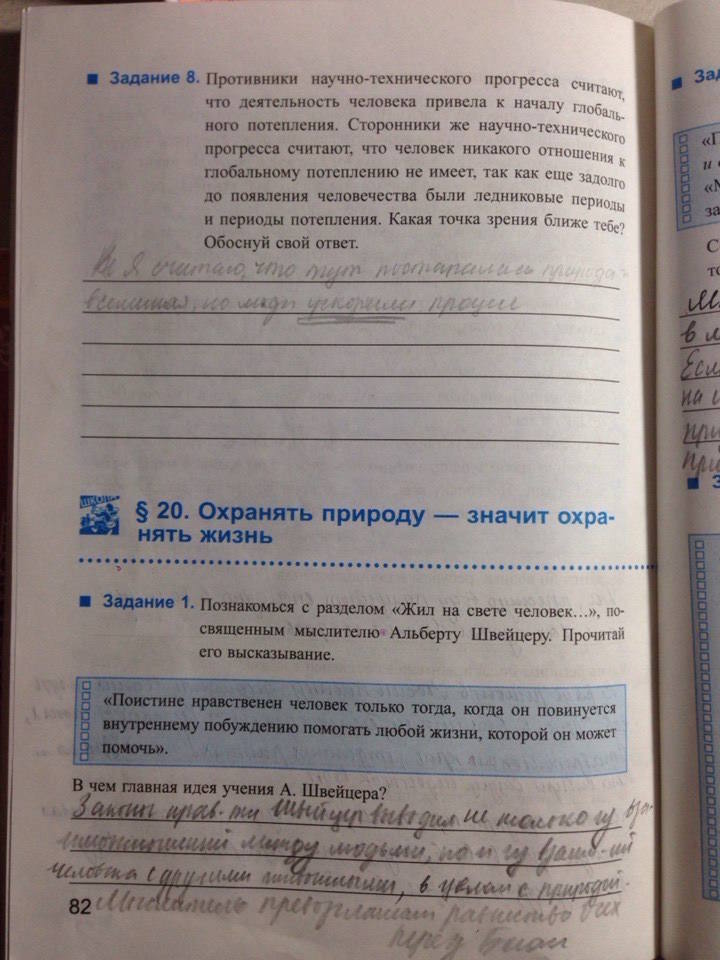 Задание 8. Противники научно-технического прогресса считают,
что деятельность человека привела к началу глобаль-
ного потепления. Сторонники же научно-технического
прогресса считают, что человек никакого отношения к
глобальному потеплению не имеет, так как еще задолго
до появления человечества были ледниковые периоды
и периоды потепления. Какая точка зрения ближе тебе?
Обоснуй свой ответ.
Я считаю, что тут постаралась природа
но люди ускорили процес
ШКОЛА
§ 20. Охранять природу — значит охра-
нять жизнь
Задание 1. Познакомься с разделом «Жил на свете человек…», по-
священным мыслителю Альберту Швейцеру. Прочитай
его высказывание.
«Поистине нравственен человек только тогда, когда он повинуется
внутреннему побуждению помогать любой жизни, которой он может
помочь».
В чем главная идея учения А. Швейцера?
Законы нрав-ти Швейцер выводил не только из вза-
имоотношений между людьми, но и из взаим-ий
человека с другими животными, в целом с природой.
Мыслитель превозглашал равенство всех
перед Богом
82
Зад
«П
и
«М
за
С
то
в л
Есл
на
при
З